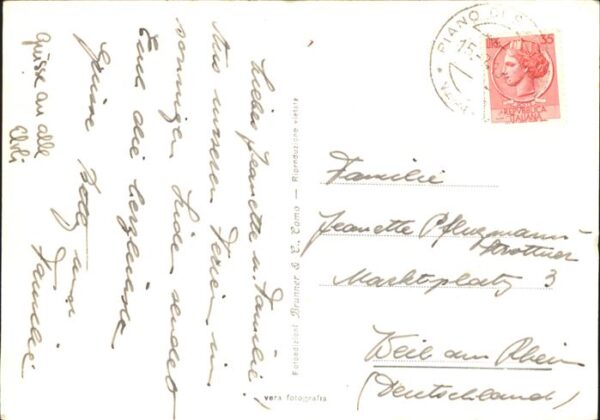 Liebe Jeanette u. Familie!
Aus unseren Ferien im
sonnigen Süden sendet
Euch die herzlichste
Grüsse Betty und
Familie
Grüsse an alle
Fotoedizioni Brunner & C., Como — Riproduzione vietata
vera fotografia
PIANO DI
15.
LIRE 35
REPUBBLICA
ITALIANA
Familie
Jeanette Pflugmann-
Strottner
Marktplatz 3
Weil am Rhein
(Deutschland)